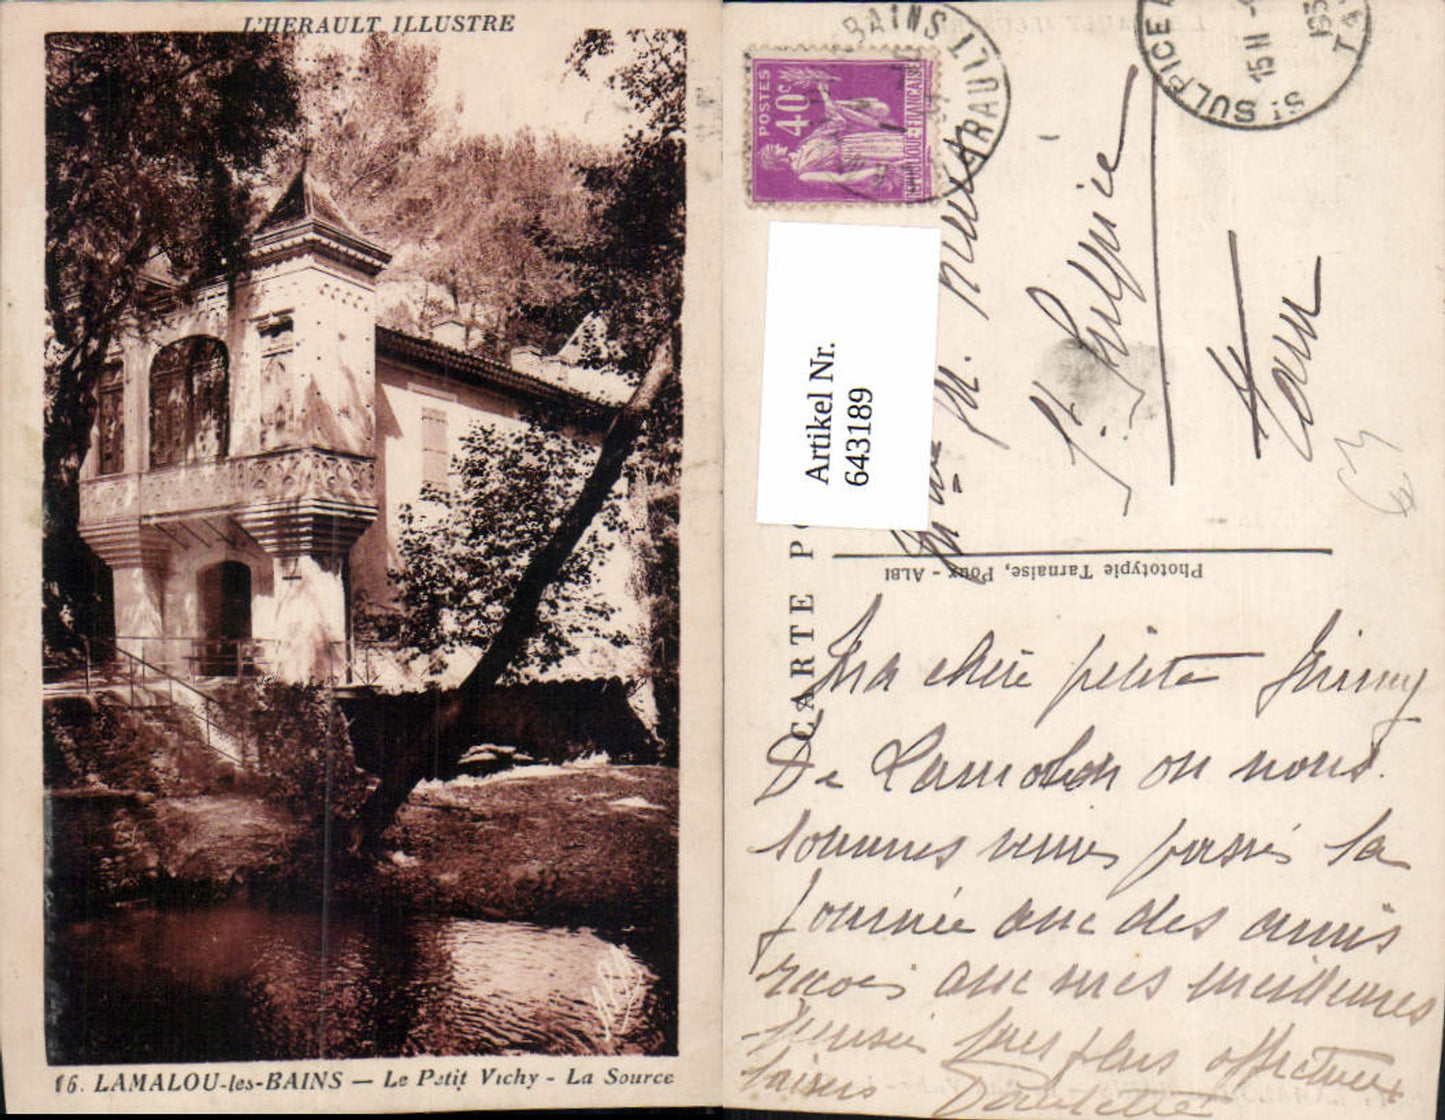 L'HERAULT ILLUSTRE
16. LAMALOU-les-BAINS — Le Petit Vichy - La Source
BAINS
POSTES
40c
FRANÇAISE
St SULPICE
15H
T
Artikel Nr.
643189
CARTE P
Phototypie Tarnaise, Poux - ALBI
St. Sulpice
Tarn
63
Ma chère petite
De Lamalou on nous
sommes venus passés la
journée avec des amis
reçois avec mes meilleures
pensés mes plus affectueux
baisers